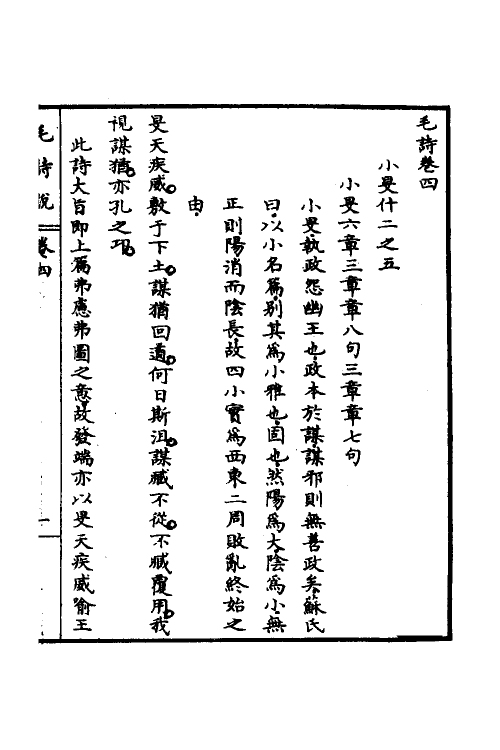 毛詩卷四
小旻什二之五
小旻六章三章章八句三章章七句
小旻執政怨幽王也政本於謀謀邪則無善政矣蘇氏
曰以小名篇別其爲小雅也固也然陽爲大陰爲小無
正則陽消而陰長故四小實爲西東二周敗亂終始之
由
旻天疾威敷于下土謀猶回遹何日斯沮謀臧不從不臧覆用我
視謀猶亦孔之邛
此詩大旨即上篇弗慮弗圖之意故發端亦以旻天疾威喻王
毛詩說 卷四 一